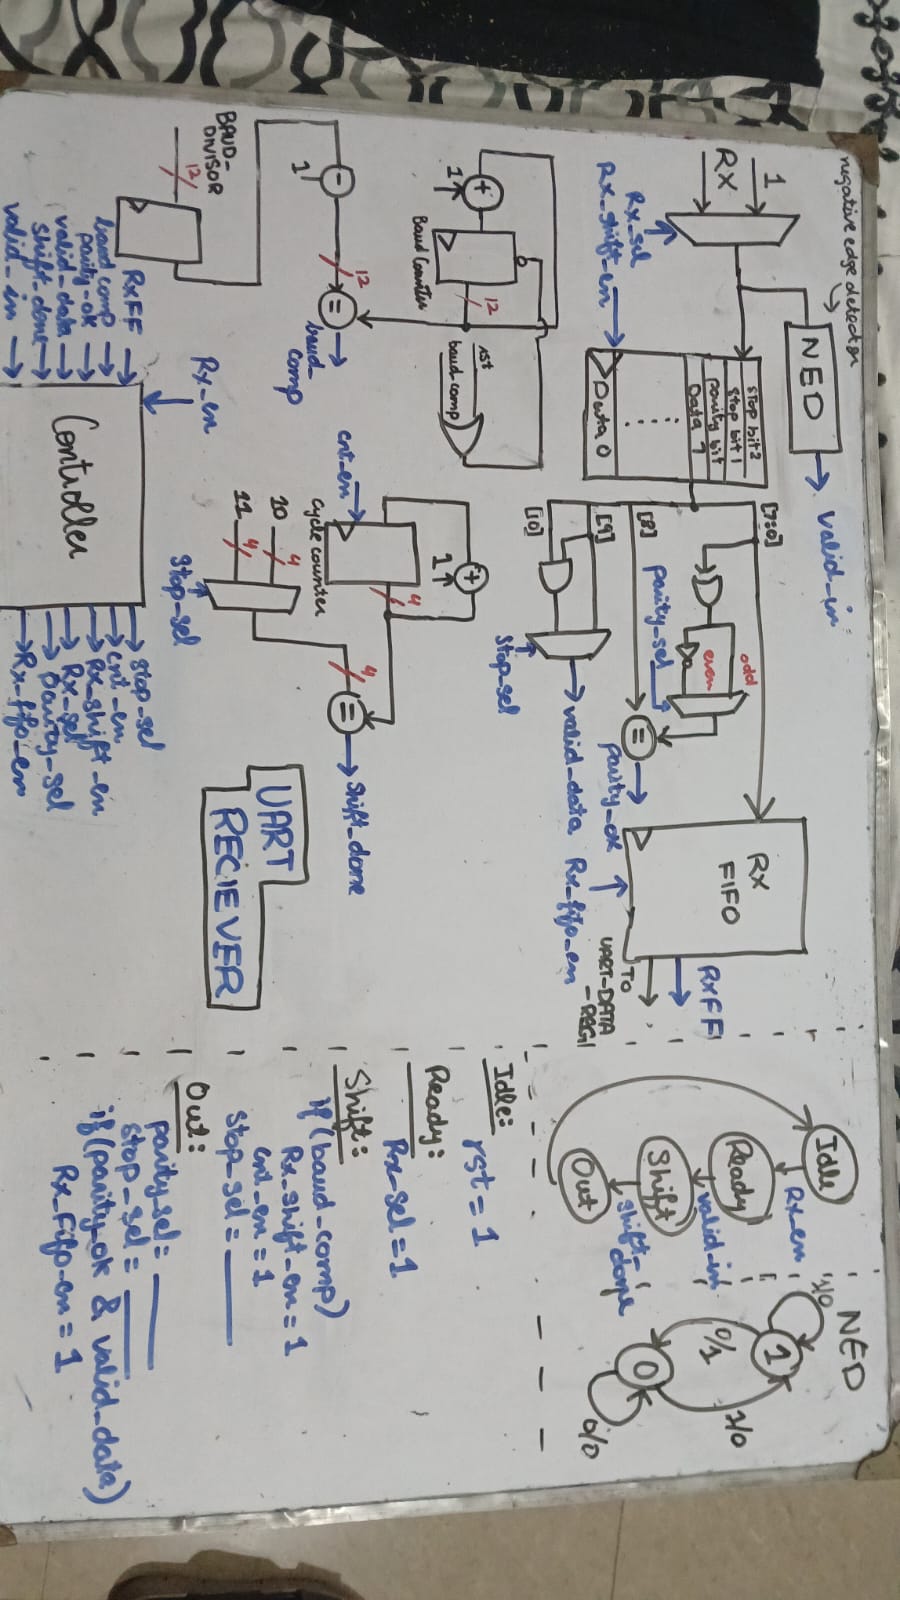 negative edge detector
NED
valid_in
1
RX
Rx_sel
Rx_shift_en
stop bit 2
stop bit 1
parity bit
Data 7
Data 0
[7:0]
odd
even
parity_sel
[8]
=
parity_ok
[9]
[10]
valid_data
stop_sel
RX
FIFO
RXFF
TO
UART_DATA
_REG
Rx_fifo_en
+
1
12
Baud Counter
rst
baud_comp
12
=
baud_
comp
-
1
BAUD_
DIVISOR
12
+
1
4
cnt_en
Cycle counter
4
=
Shift_done
10
4
11
4
Stop_sel
UART
RECIEVER
Rx_en
Controller
RxFF
baud comp
parity_ok
valid_data
shift_done
valid_in
stop_sel
cnt_en
Rx_shift_en
Rx_sel
parity_sel
Rx_fifo_en
Idle
Rx_en
Ready
valid_in
Shift
shift_
done
Out
NED
1/0
1
0/1
1/0
0
0/0
Idle:
rst = 1
Ready:
Rx_sel = 1
Shift:
if (baud_comp)
Rx_shift_en = 1
cnt_en = 1
stop_sel = ____
Out:
parity_sel = ____
stop_sel = ____
if (parity_ok & valid_data)
Rx_Fifo_en = 1